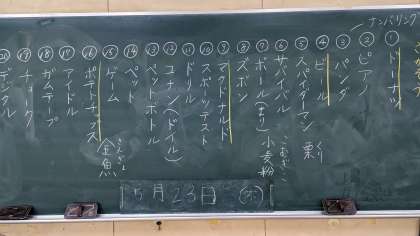 ナンバリング
① ドーナツ
② ピアノ
③ パンダ
④ ビール
⑤ スパイダーマン
⑥ サバイバル
⑦ ボール(まり)
⑧ ズボン
⑨ マクドナルド
⑩ スポッテスト
⑪ ドリル
⑫ コナン(ドイル)
⑬ ペットボトル
⑭ ペット
⑮ ゲーム
⑯ ポテトチップス
⑰ アイドル
⑱ ガムテープ
⑲ チョーク
⑳ デジタル
栗
くり
小麦粉
こむぎこ
金魚
きんぎょ
5月23日(木)